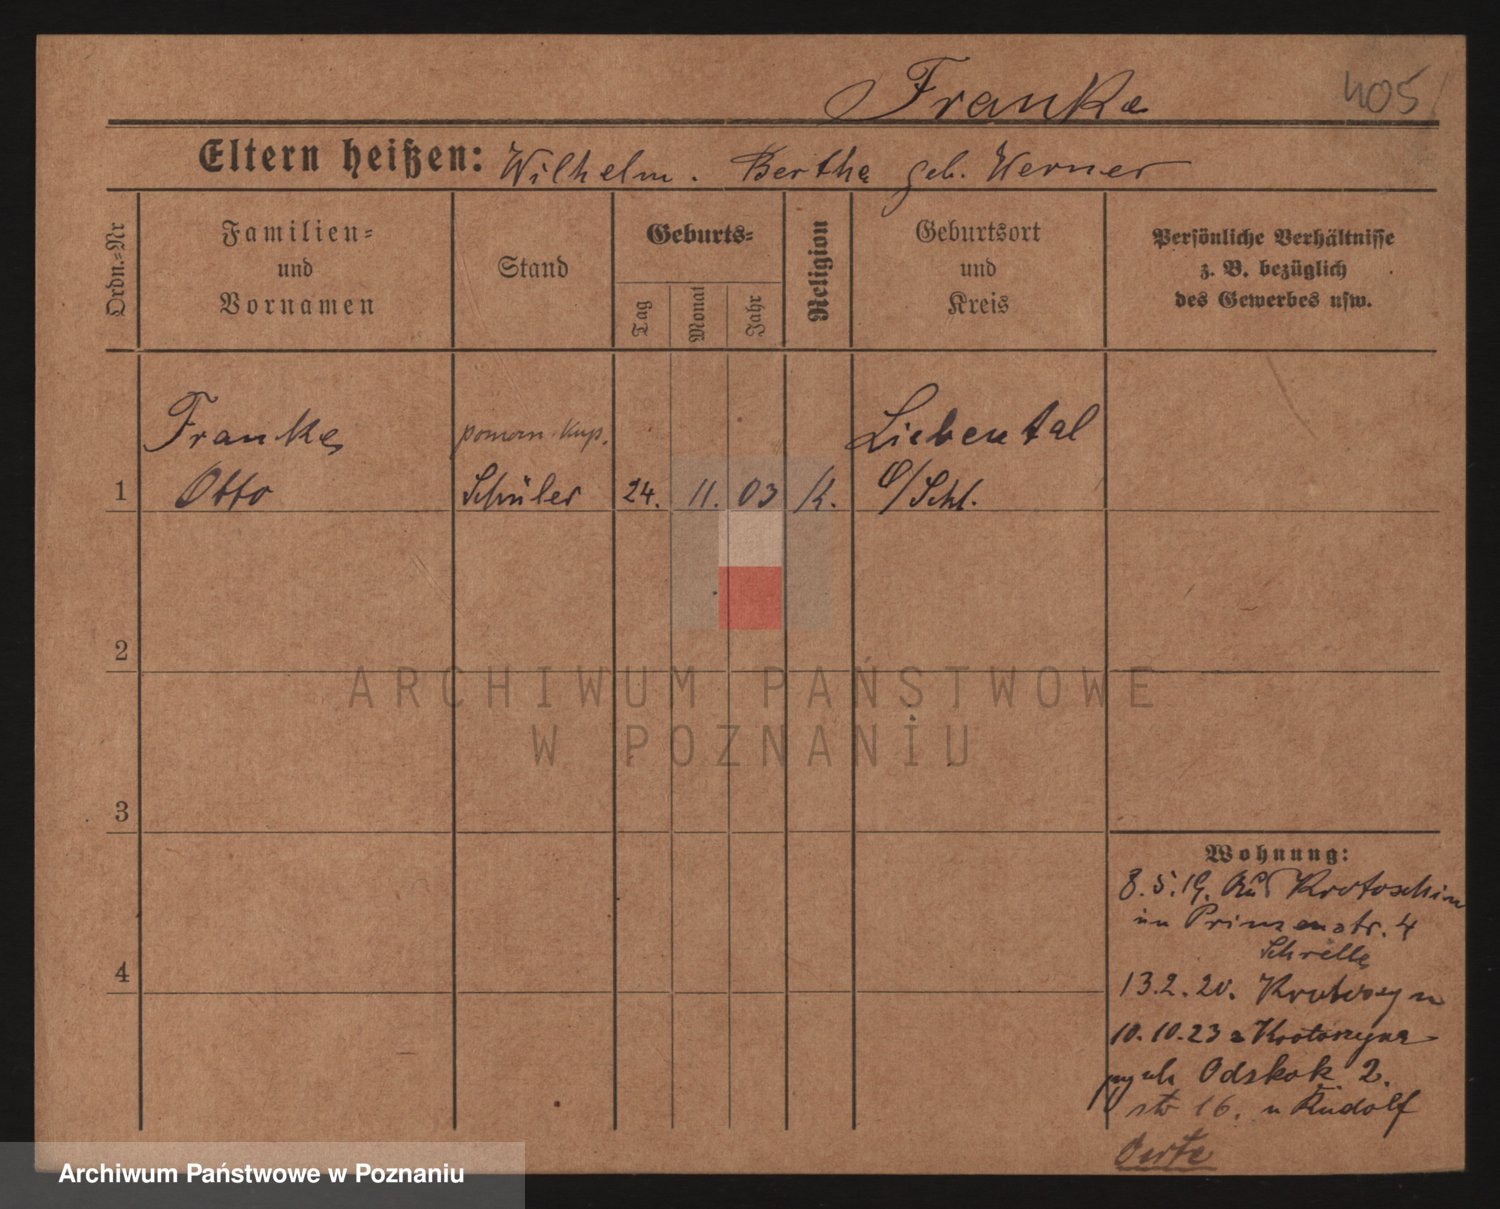 Franke
405
Eltern heißen: Wilhelm. Bertha geb. Werner
Ordn.=Nr
Familien=
und
Vornamen
Stand
Geburts=
Tag
Monat
Jahr
Religion
Geburtsort
und
Kreis
Persönliche Verhältnisse
z. B. bezüglich
des Gewerbes usw.
Franke pomocn. kup. Liebental
1 Otto Schüler 24. 11. 03 K. O/Schl.
2
3
4
Wohnung:
8.5.19. Aus Krotoschin
in Prinzenstr. 4
13.2.20. Krotoszyn
10.10.23 z Krotoszyna
Odskok 2.
16. u Rudolf
ARCHIWUM PAŃSTWOWE
W POZNANIU
Archiwum Państwowe w Poznaniu